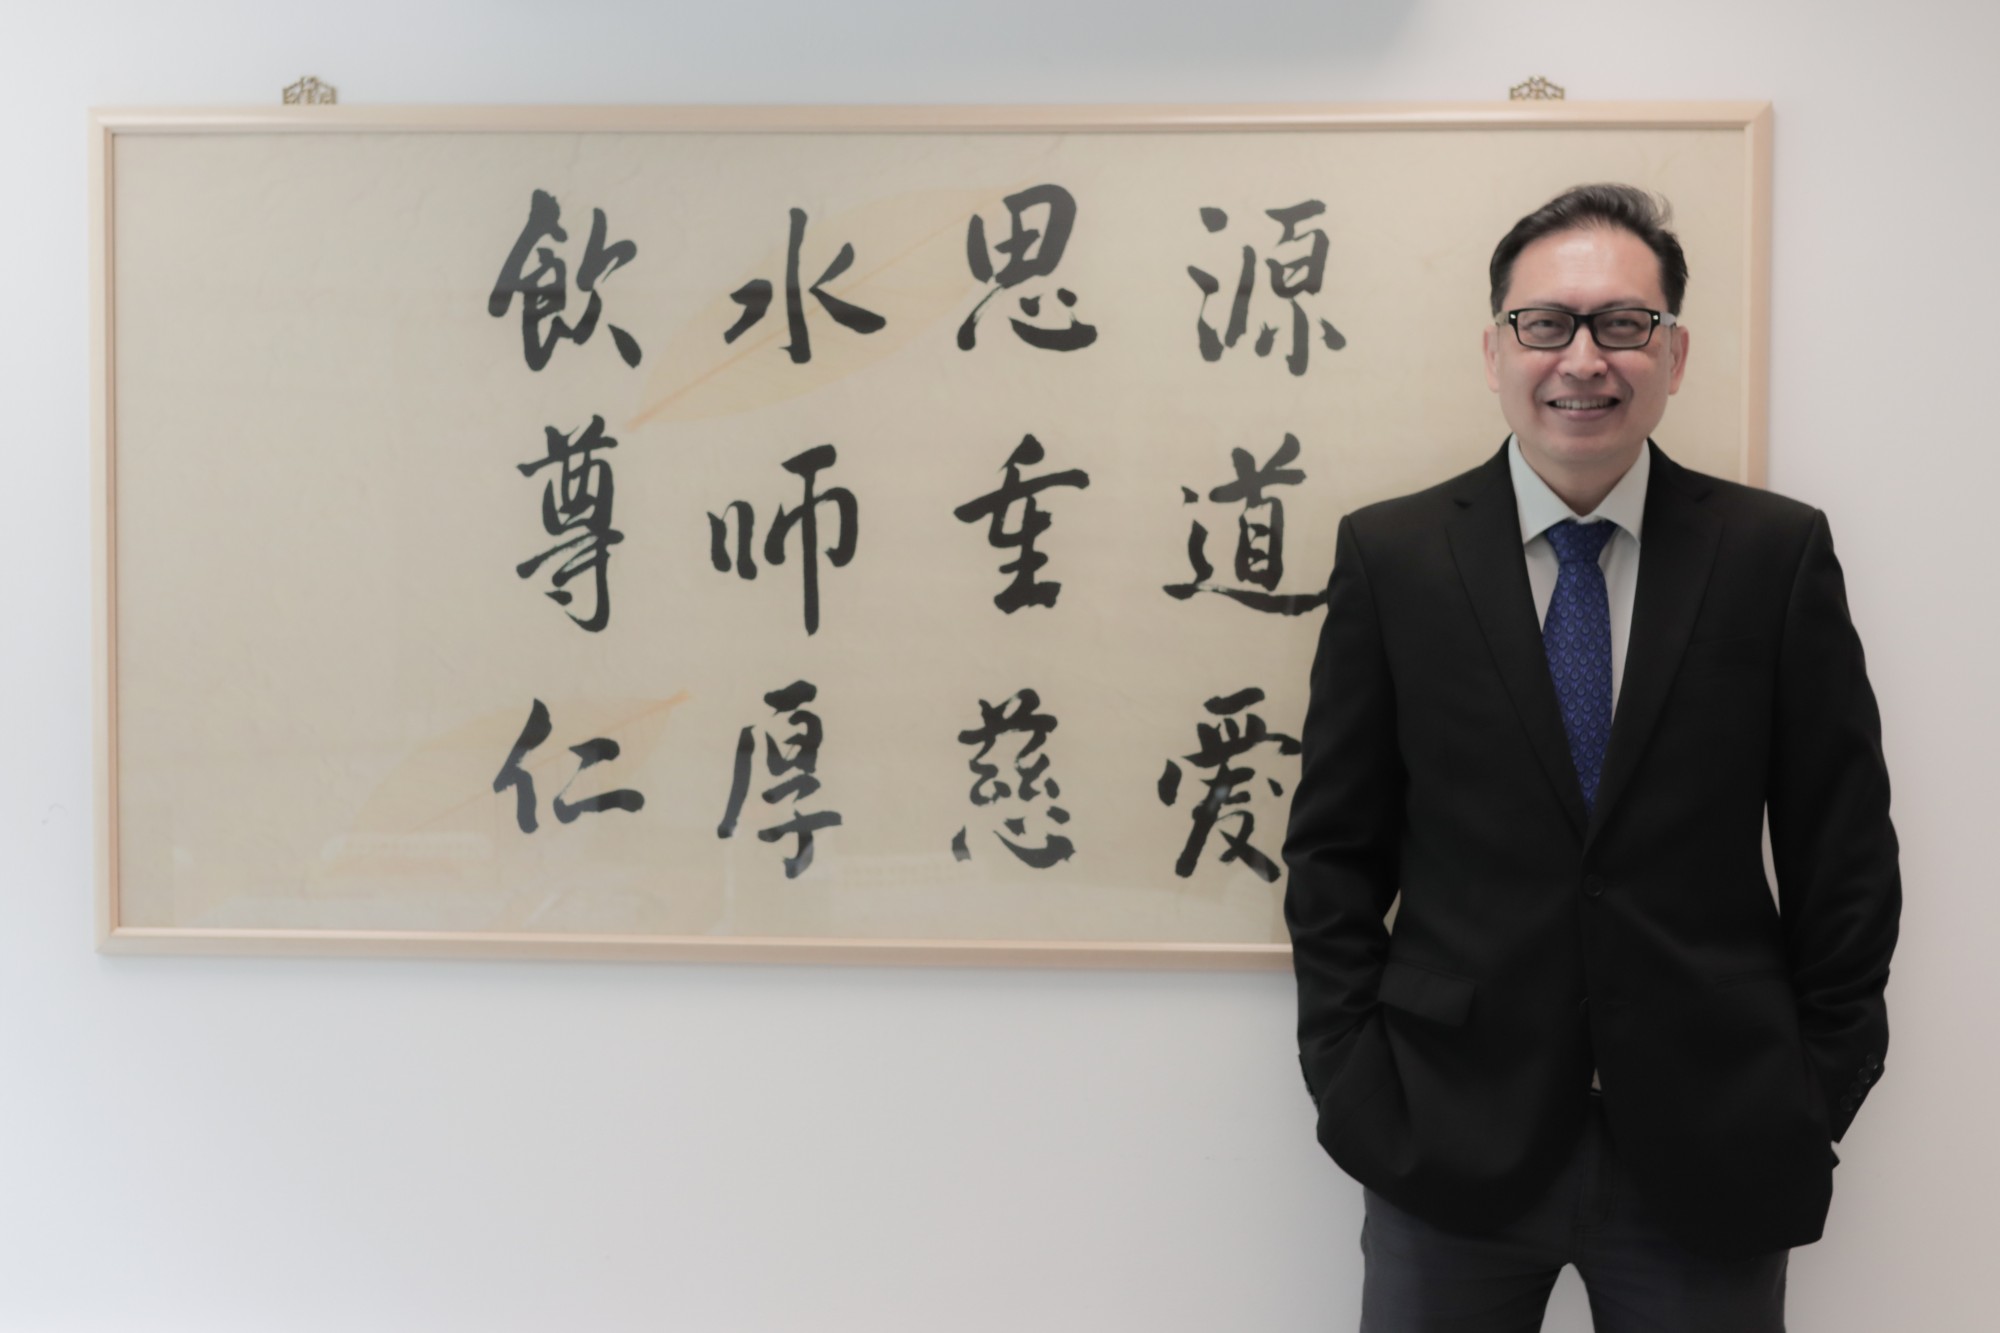 飲水思源
尊師重道
仁厚慈愛